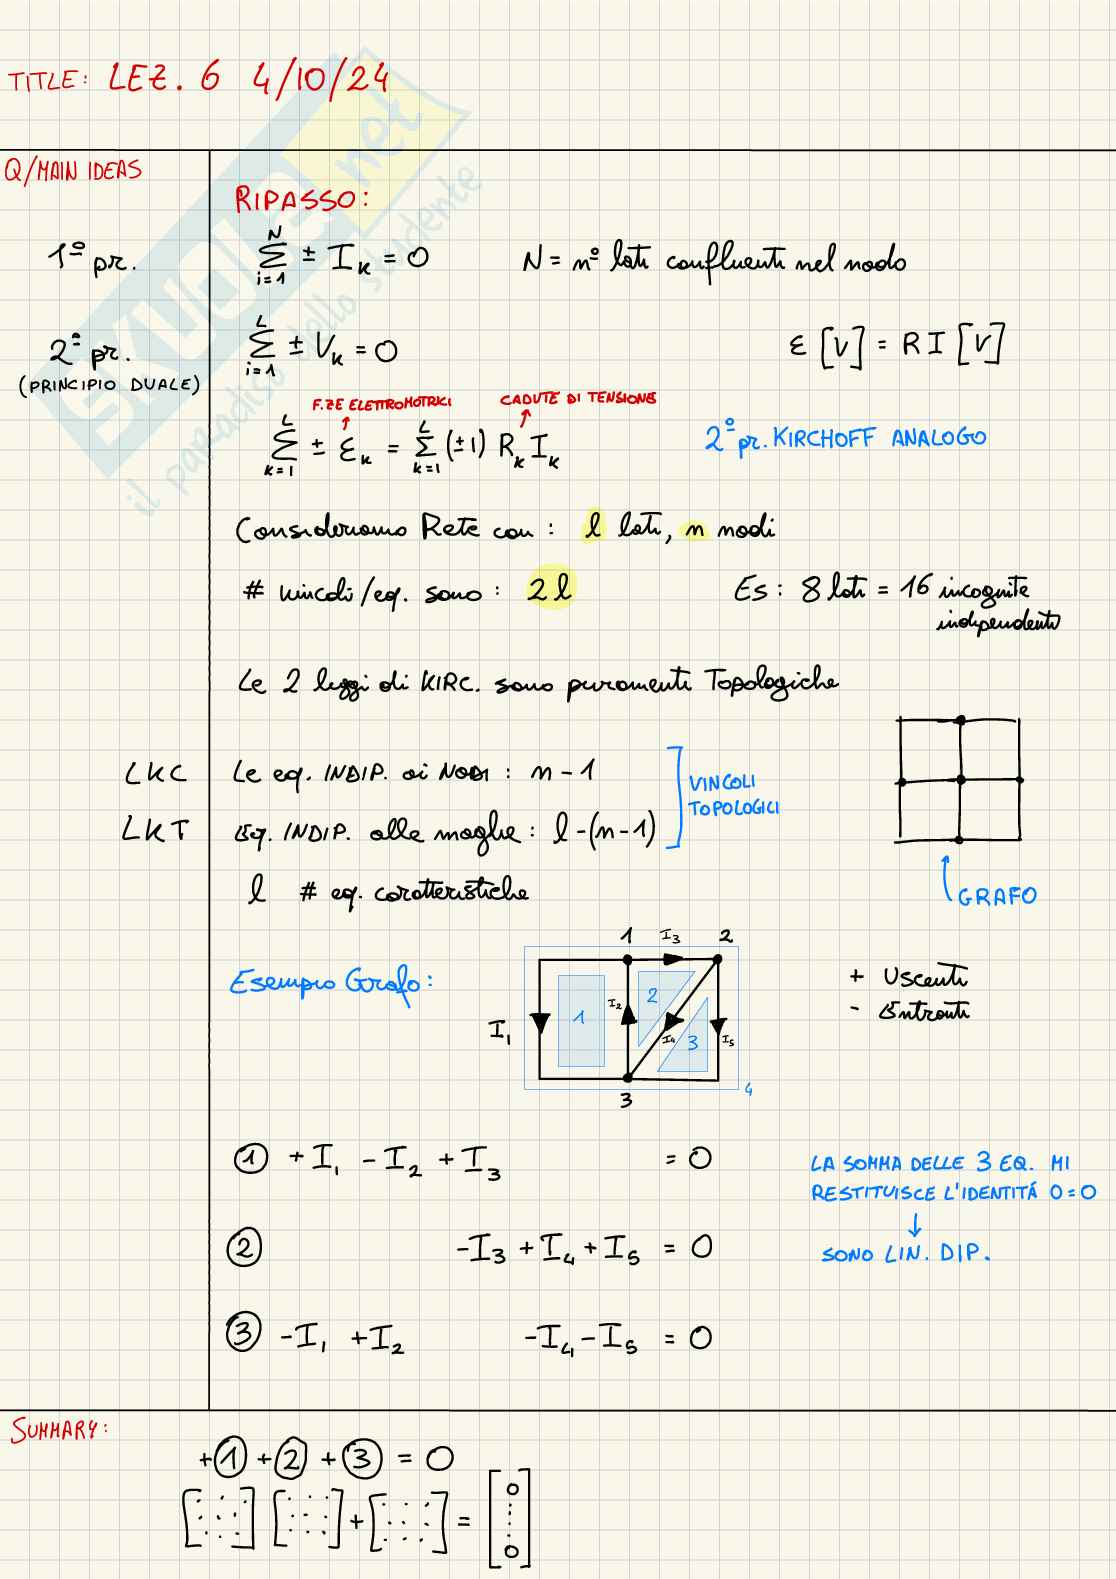 TITLE: LEZ. 6 4/10/24
Q/MAIN IDEAS
RIPASSO:
1º pr.
N
Σ ± I_K = 0
i=1
N = nº lati confluenti nel nodo
2º pr.
(PRINCIPIO DUALE)
L
Σ ± V_K = 0
i=1
ε [V] = R I [V]
F.ZE ELETTROMOTRICI
CADUTE DI TENSIONE
L L
Σ ± ε_K = Σ (±1) R_K I_K
K=1 K=1
2º pr. KIRCHOFF ANALOGO
Consideriamo Rete con : l lati, n nodi
# vincoli/eq. sono : 2l
Es : 8 lati = 16 incognite
indipendenti
Le 2 leggi di KIRC. sono puramenti Topologiche
LKC
Le eq. INDIP. ai NODI : n - 1
LKT
Eq. INDIP. alle maglie : l - (n - 1)
VINCOLI
TOPOLOGICI
l # eq. caratteristiche
GRAFO
Esempio Grafo :
1 I3 2
I1 1 I2 2 I4 3 I5
3 4
+ Uscenti
- Entranti
① + I1 - I2 + I3 = 0
② - I3 + I4 + I5 = 0
③ - I1 + I2 - I4 - I5 = 0
LA SOMMA DELLE 3 EQ. MI
RESTITUISCE L'IDENTITÁ 0=0
↓
SONO LIN. DIP.
SUMMARY:
+① +② +③ = 0
[⋮⋮⋮] [⋮⋮⋮] + [⋮⋮⋮] = [0 ⋮ 0]
SKUOLA.net
il paradiso dello studente